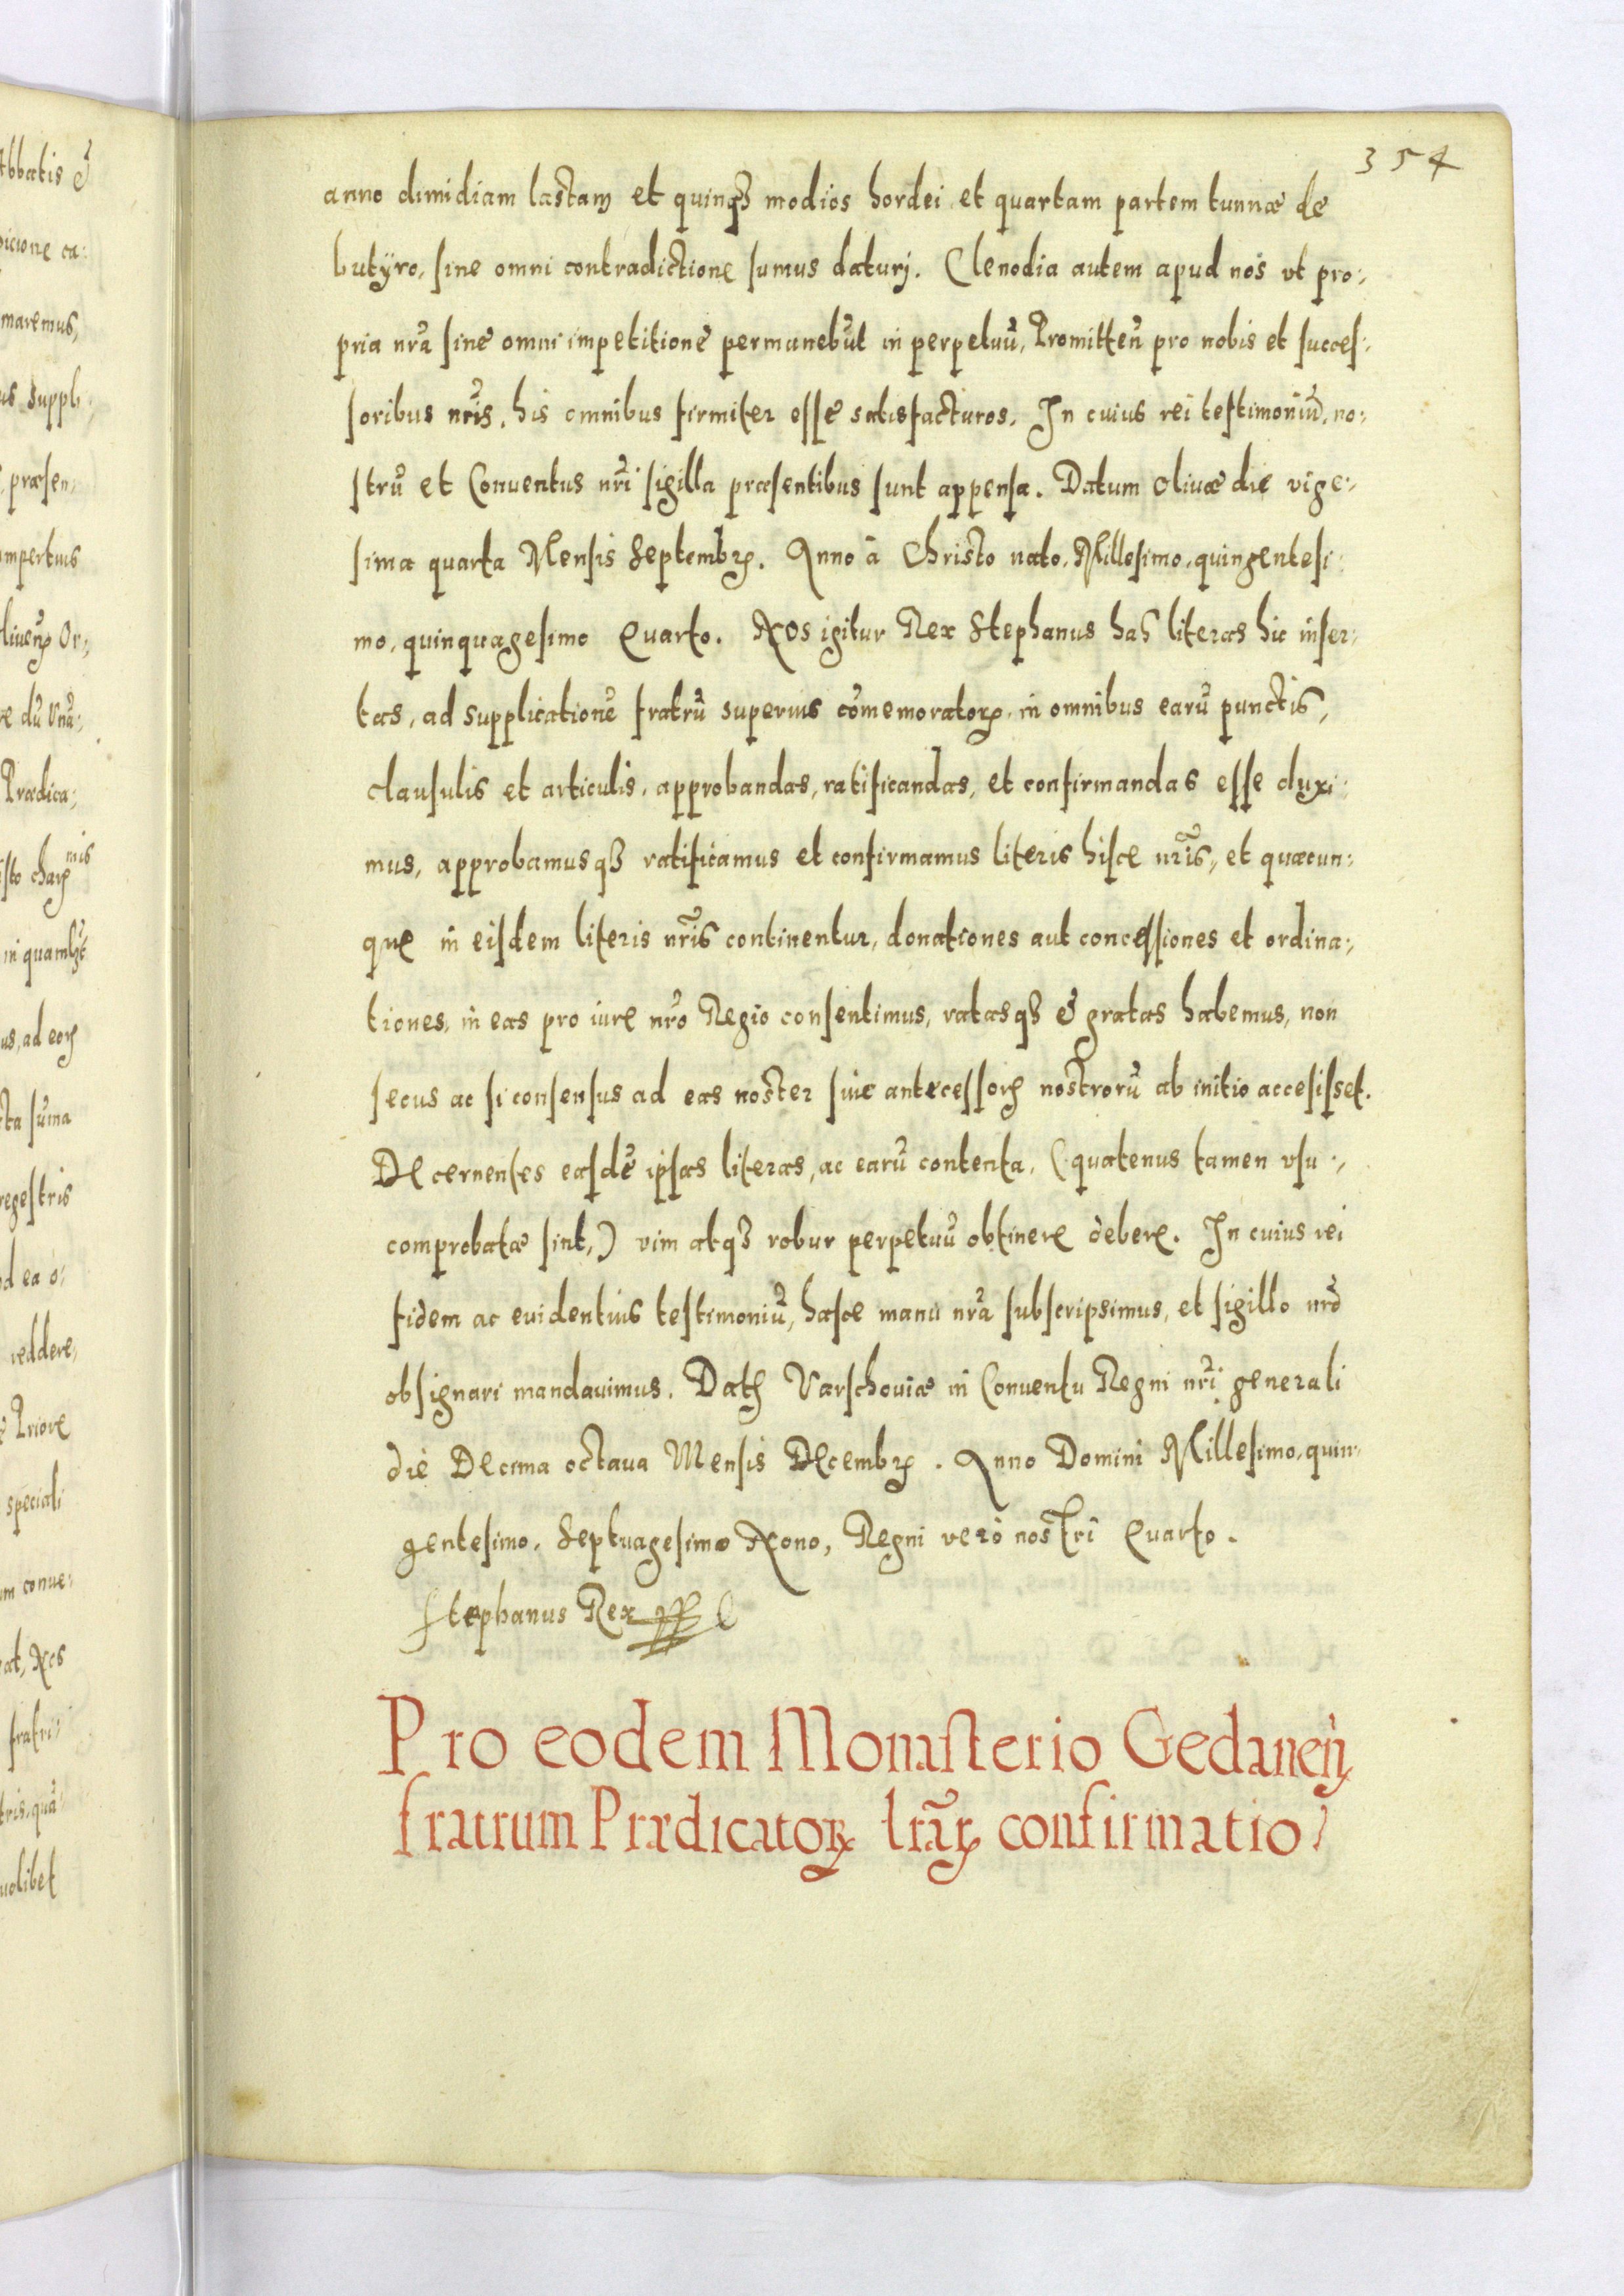 354
anno dimidiam lastam et quinqꝫ modios hordei et quartam partem tunnæ de
butÿro, sine omni contradictione sumus daturj. Clenodia autem apud nos vt pro:
pria nr̃a sine omni impetitione permanebũt in perpetuũ, Promitteñ pro nobis et succes:
soribus nr̃is, his omnibus firmiter esse satisfacturos. In cuius rei testimoniũ, no:
strũ et Conuentus nr̃i sigilla præsentibus sunt appensa. Datum Oliuæ die vige:
sima quarta Mensis Septembrꝭ. Anno â Christo nato, Millesimo, quingentesi:
mo, quinquagesimo Quarto. Nos igitur Rex Stephanus has literas hic inser:
tas, ad supplicationẽ fratrũ superius cõmemoratorꝝ, in omnibus earũ punctis,
clausulis et articulis, approbandas, ratificandas, et confirmandas esse duxi:
mus, approbamusqꝫ ratificamus et confirmamus literis hisce nr̃is, et quæcun:
que in eisdem literis nr̃is continentur, donationes aut concessiones et ordina:
tiones, in eas pro iure nr̃o Regio consentimus, ratasqꝫ & gratas habemus, non
secus ac si consensus ad eas noster siue antecessorꝝ nostrorũ ab initio accesisset.
Decernentes easdẽ ipsas literas, ac earũ contenta, (quatenus tamen vsu
comprobatæ sint,) vim atqꝫ robur perpetuũ obtinere debere. In cuius rei
fidem ac euidentius testimoniũ, hasce manu nr̃a subscripsimus, et sigillo nr̃o
obsignari mandauimus. Datꝭ Varschouiæ in Conuentu Regni nr̃i generali
die Decima octaua Mensis Decembrꝭ. Anno Domini Millesimo, quin:
gentesimo, Septuagesimo Nono, Regni verò nostri Quarto.
Stephanus Rex
Pro eodem Monasterio Gedaneñ
fratrum Prædicatorꝝ lr̃arꝝ confirmatio